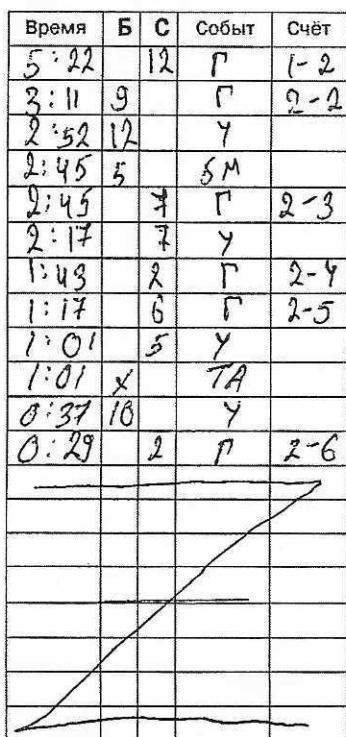 Время Б С Событ Счёт
5:22 12 Г 1-2
3:11 9 Г 2-2
2:52 12 У
2:45 5 5М
2:45 7 Г 2-3
2:17 7 У
1:43 2 Г 2-4
1:17 6 Г 2-5
1:01 5 У
1:01 х ТА
0:37 10 У
0:29 2 Г 2-6